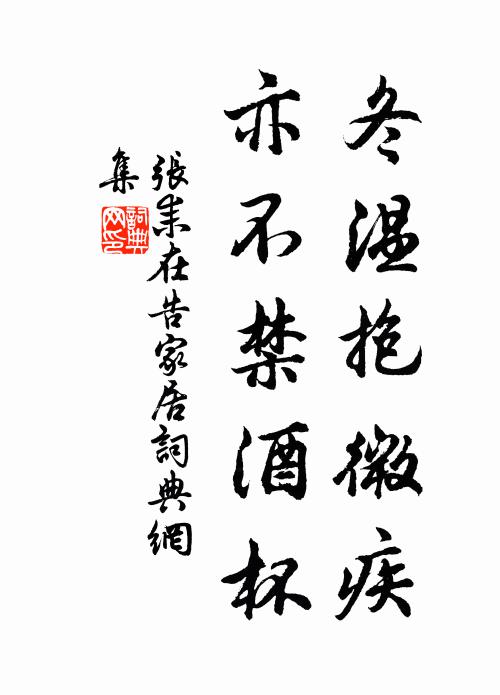 冬温抱微疾
亦不禁酒杯
張耒在告家居詞典網
集
詞典網印